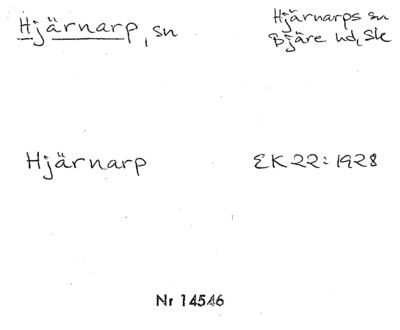 Hjärnarp, sn
Hjärnarps sn
Bjäre hd, Sk
Hjärnarp
EK 22: 1928
Nr 14546